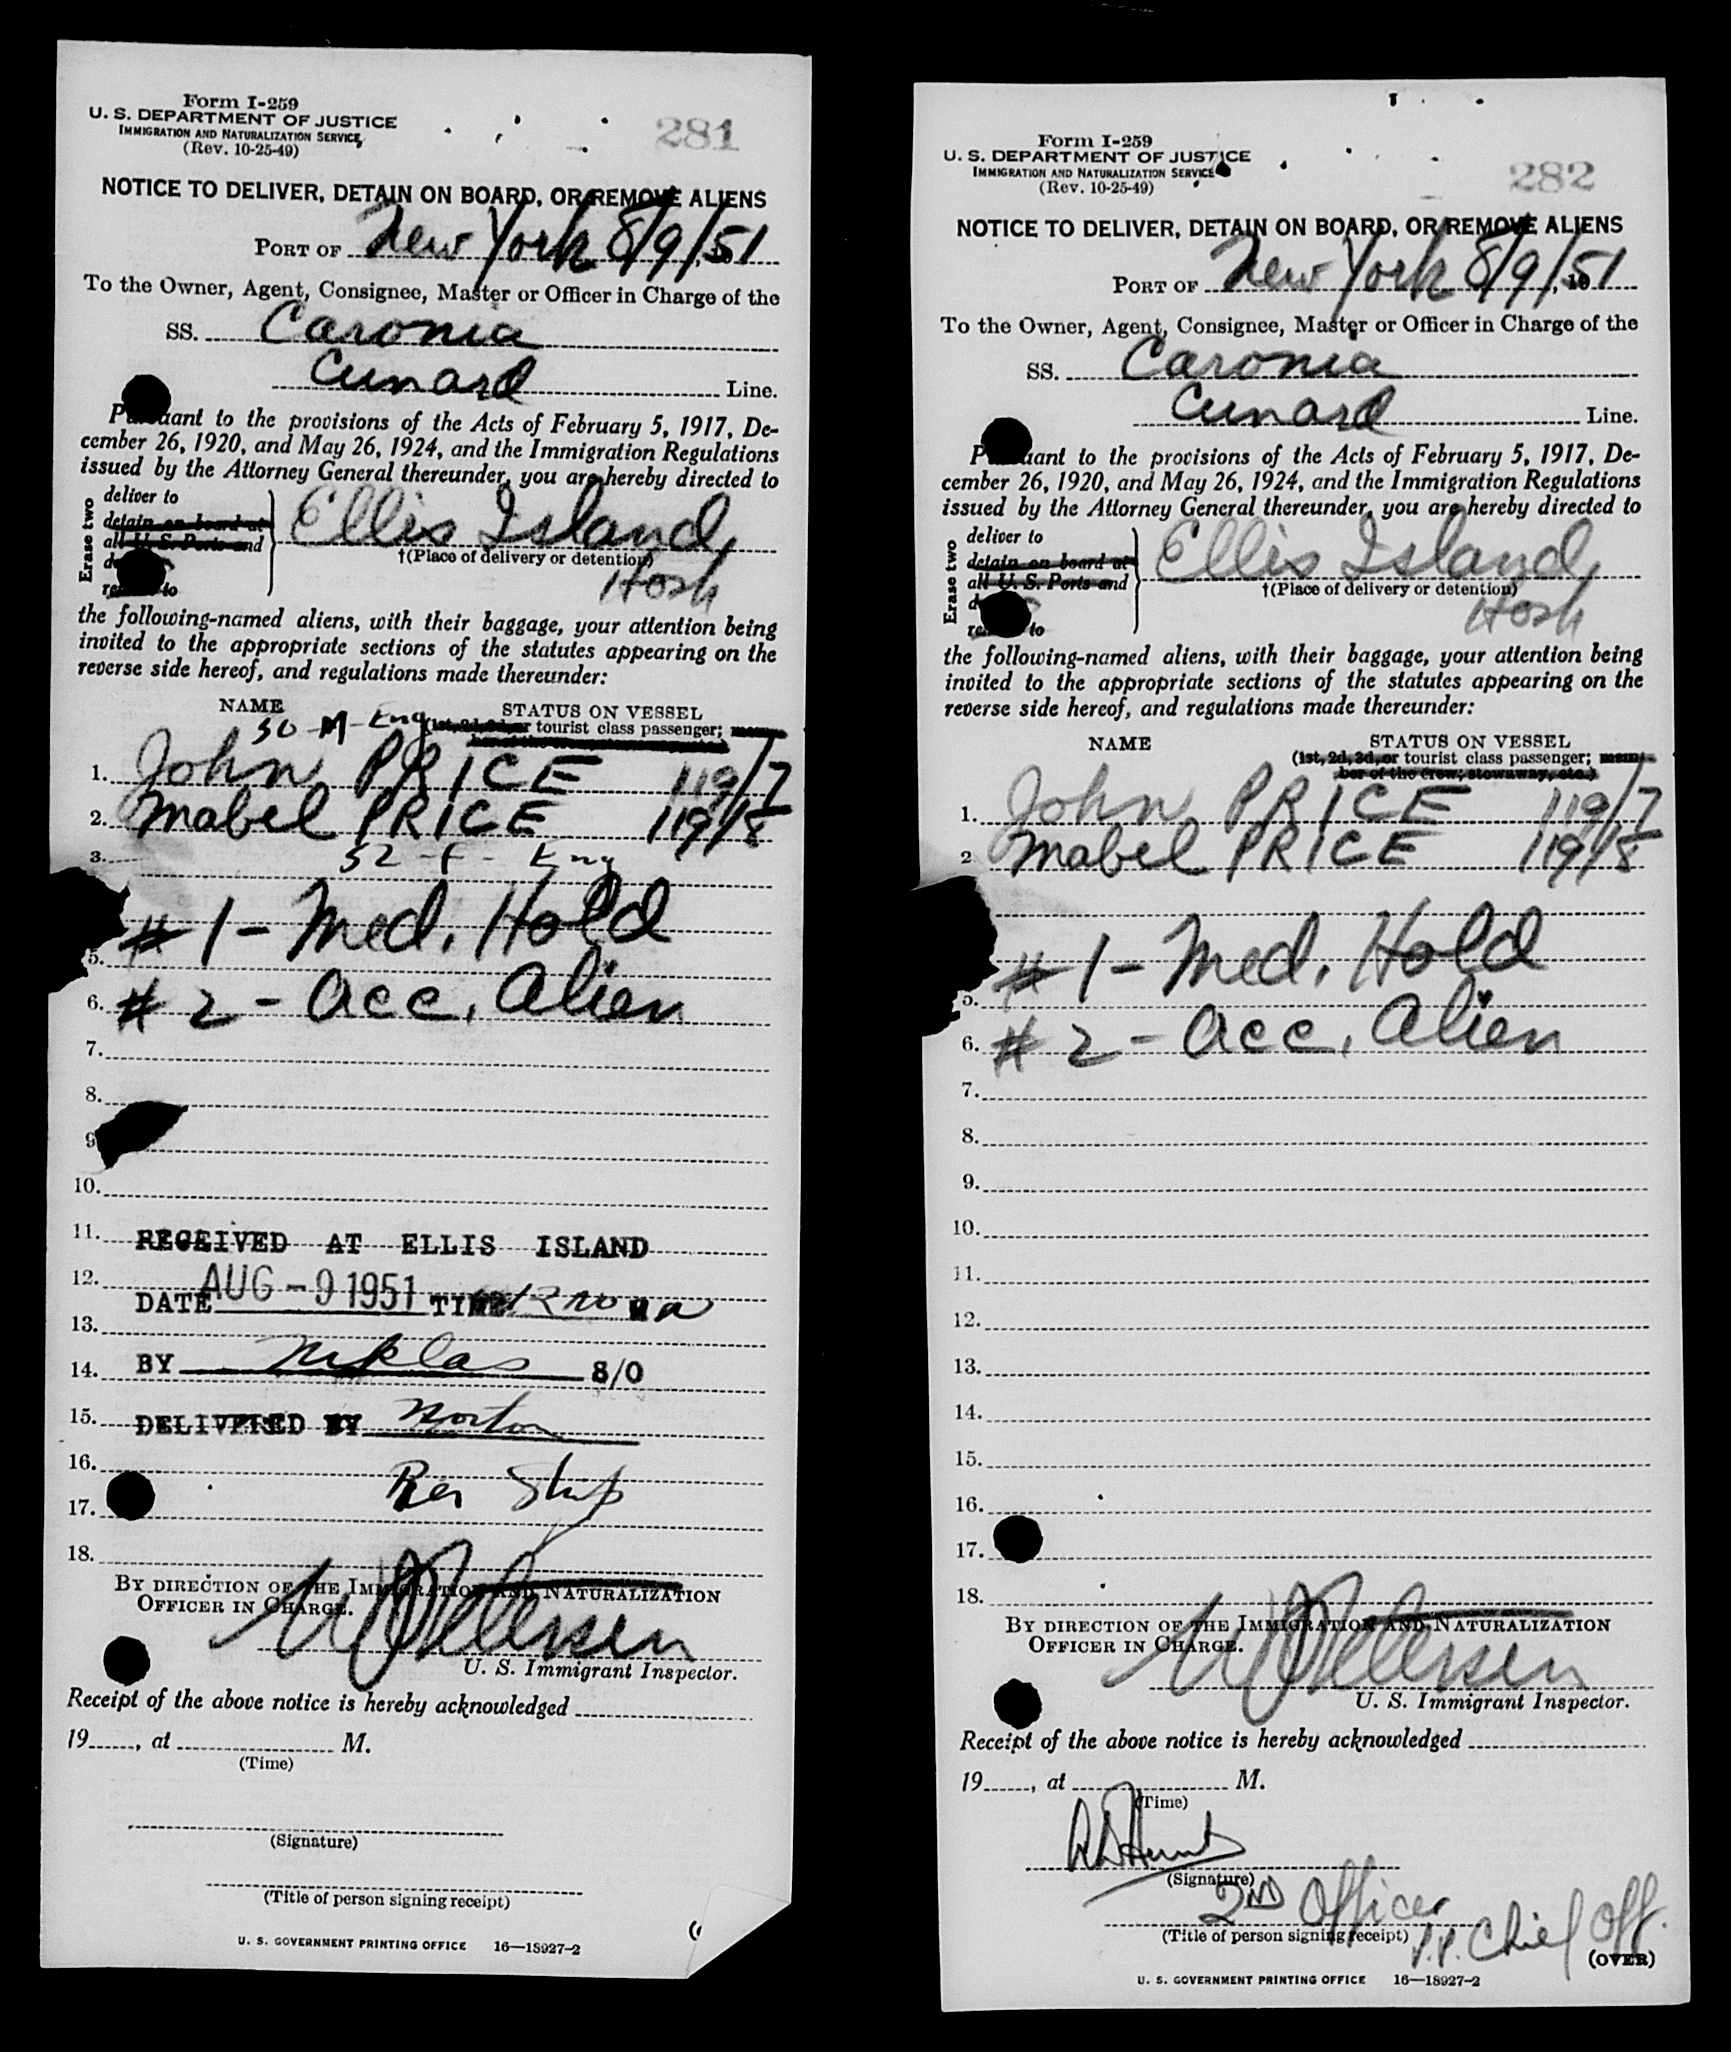 Form I-259
U. S. DEPARTMENT OF JUSTICE
IMMIGRATION AND NATURALIZATION SERVICE
(Rev. 10-25-49)
281
NOTICE TO DELIVER, DETAIN ON BOARD, OR REMOVE ALIENS
PORT OF New York 8/9/51
To the Owner, Agent, Consignee, Master or Officer in Charge of the
SS. Caronia
Cunard Line.
Pursuant to the provisions of the Acts of February 5, 1917, De-
cember 26, 1920, and May 26, 1924, and the Immigration Regulations
issued by the Attorney General thereunder, you are hereby directed to
Erase two
deliver to
detain on board at
all U. S. Ports and
to
Ellis Island,
†(Place of delivery or detention)
Hosp
the following-named aliens, with their baggage, your attention being
invited to the appropriate sections of the statutes appearing on the
reverse side hereof, and regulations made thereunder:
NAME STATUS ON VESSEL
50-M-Eng (1st, 2d, 3d, or tourist class passenger; mem-
ber of the crew; stowaway, etc.)
1. John PRICE 119/7
2. Mabel PRICE 119/8
3. 52-F-Eng
# 1 - Med. Hold
5.
6. # 2 - Acc. Alien
7.
8.
9
10.
11. RECEIVED AT ELLIS ISLAND
12. DATE AUG - 9 1951 TIME
13.
14. BY Niklas S/O
15. DELIVERED BY Norton
16. Per Ship
17.
18.
BY DIRECTION OF THE IMMIGRATION AND NATURALIZATION
OFFICER IN CHARGE.
U. S. Immigrant Inspector.
Receipt of the above notice is hereby acknowledged
19, at M.
(Time)
(Signature)
(Title of person signing receipt)
U. S. GOVERNMENT PRINTING OFFICE 16—18927-2
Form I-259
U. S. DEPARTMENT OF JUSTICE
IMMIGRATION AND NATURALIZATION SERVICE
(Rev. 10-25-49)
282
NOTICE TO DELIVER, DETAIN ON BOARD, OR REMOVE ALIENS
PORT OF New York 8/9/51
To the Owner, Agent, Consignee, Master or Officer in Charge of the
SS. Caronia
Cunard Line.
Pursuant to the provisions of the Acts of February 5, 1917, De-
cember 26, 1920, and May 26, 1924, and the Immigration Regulations
issued by the Attorney General thereunder, you are hereby directed to
Erase two
deliver to
detain on board at
all U. S. Ports and
to
Ellis Island,
†(Place of delivery or detention)
Hosp
the following-named aliens, with their baggage, your attention being
invited to the appropriate sections of the statutes appearing on the
reverse side hereof, and regulations made thereunder:
NAME STATUS ON VESSEL
(1st, 2d, 3d, or tourist class passenger; mem-
ber of the crew; stowaway, etc.)
1. John PRICE 119/7
2 Mabel PRICE 119/8
# 1 - Med. Hold
5.
6. # 2 - Acc. Alien
7.
8.
9.
10.
11.
12.
13.
14.
15.
16.
17.
18.
BY DIRECTION OF THE IMMIGRATION AND NATURALIZATION
OFFICER IN CHARGE.
U. S. Immigrant Inspector.
Receipt of the above notice is hereby acknowledged
19, at M.
(Time)
(Signature)
2ND Officer
(Title of person signing receipt) p.p. Chief Off.
(OVER)
U. S. GOVERNMENT PRINTING OFFICE 16—18927-2